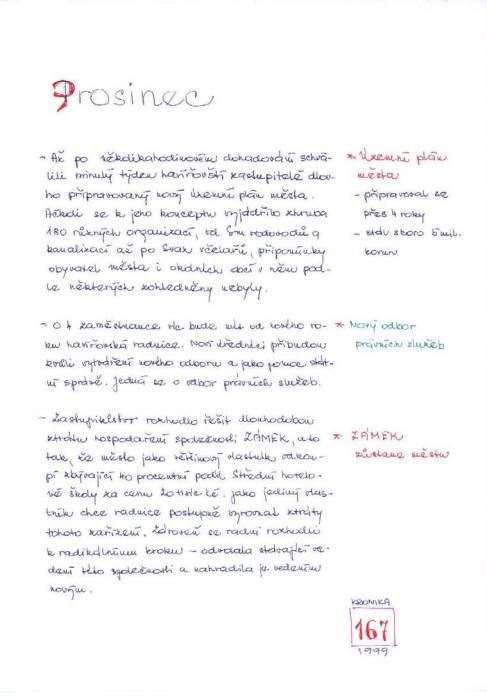 Prosinec
- Až po několikahodinovém dohadování schvá-
lili minulý týden havířovští zastupitelé dlou-
ho připravovaný nový Územní plán města.
Ačkoli se k jeho konceptu vyjádřilo zhruba
180 různých organizací, od Sm vodovodů a
kanalizací až po Svaz včelařů, připomínky
obyvatel města i okolních obcí v něm pod-
le některých zohledněny nebyly.
* Územní plán
města
- připravoval se
přes 4 roky
- stál skoro 5 mil.
korun
- O 4 zaměstnance víc bude mít od nového ro-
ku havířovská radnice. Noví úředníci přibudou
kvůli vytvoření nového odboru a jako pomoc stát-
ní správě. Jedná se o odbor právních služeb.
* Nový odbor
právních služeb
- Zastupitelstvo rozhodlo řešit dlouhodobou
ztrátu hospodaření společnosti ZÁMEK, a to
tak, že město jako většinový vlastník odkou-
pí zbývající 40 procentní podíl Střední hotelo-
vé školy za cenu 20 tisíc kč. Jako jediný vlas-
tník chce radnice postupně vyrovnat ztráty
tohoto zařízení. Zároveň se radní rozhodli
k radikálnímu kroku - odvolala stávající ve-
dení této společnosti a nahradila je vedením
novým.
* ZÁMEK
zůstane městu
KRONIKA
167
1999